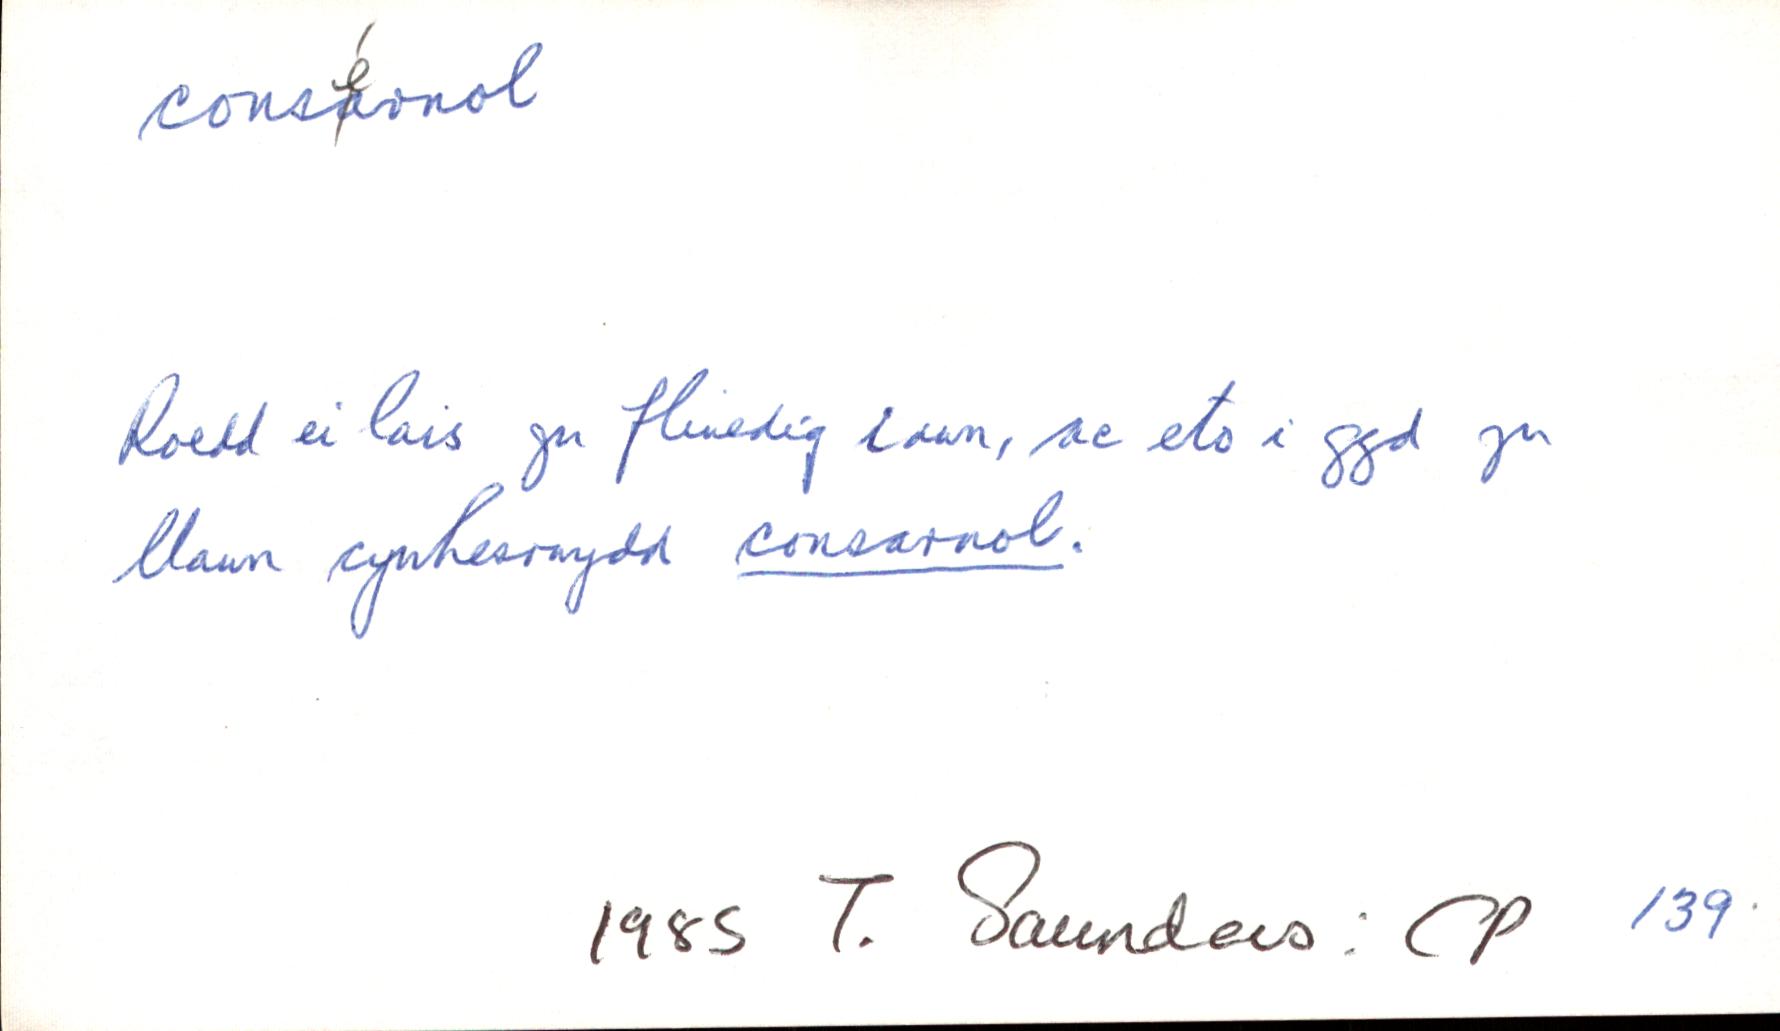 consernol
Roedd ei lais yn flinedig iawn, ac eto i gyd yn
llawn cynhesrwydd consarnol.
1985 T. Saunders: CP 139.